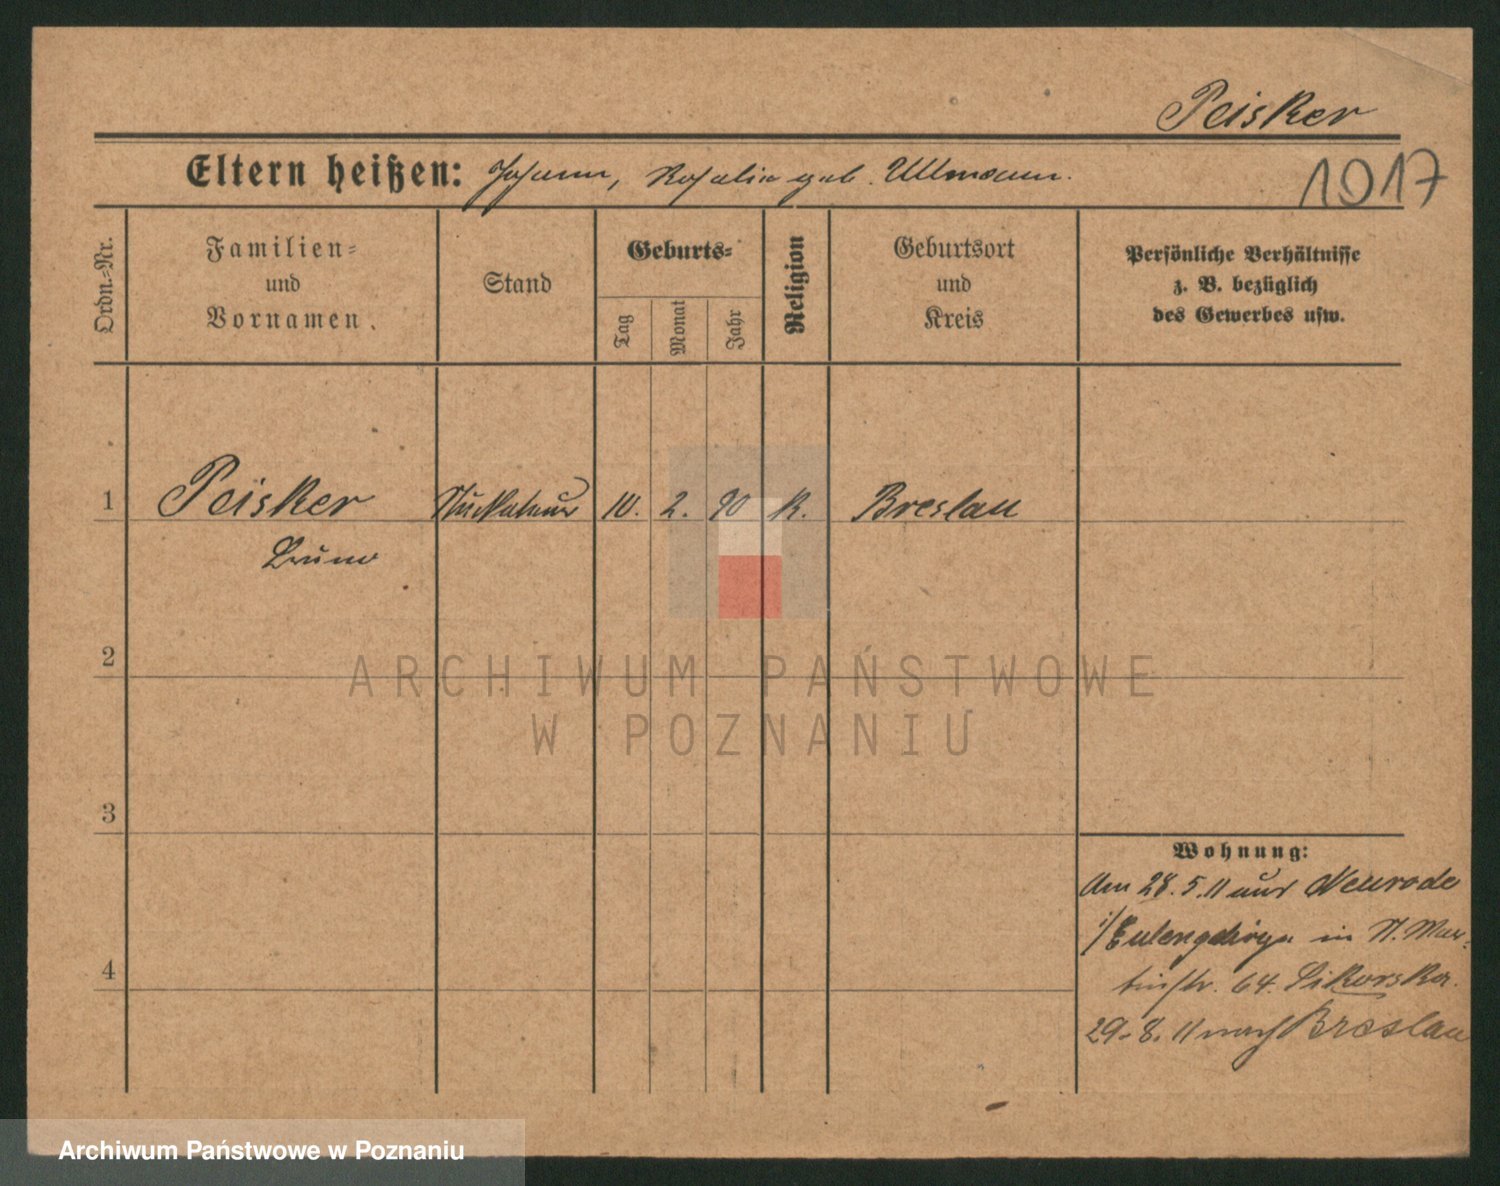 Peisker
Eltern heißen: Johann, Rosalia geb. Ullmann.
1017
Ordn.=Nr.
Familien=
und
Vornamen.
Stand
Geburts=
Tag
Monat
Jahr
Religion
Geburtsort
und
Kreis
Persönliche Verhältnisse
z. B. bezüglich
des Gewerbes usw.
1 Peisker Stuckateur 10. 2. 90 k. Breslau
Bruno
2
ARCHIWUM PAŃSTWOWE
W POZNANIU
3
Wohnung:
Am 28. 5. 11 aus Neurode
i/Eulengebirge in St. Mar-
4
tinstr. 64. Sikorska.
29. 8. 11 nach Breslau
Archiwum Państwowe w Poznaniu